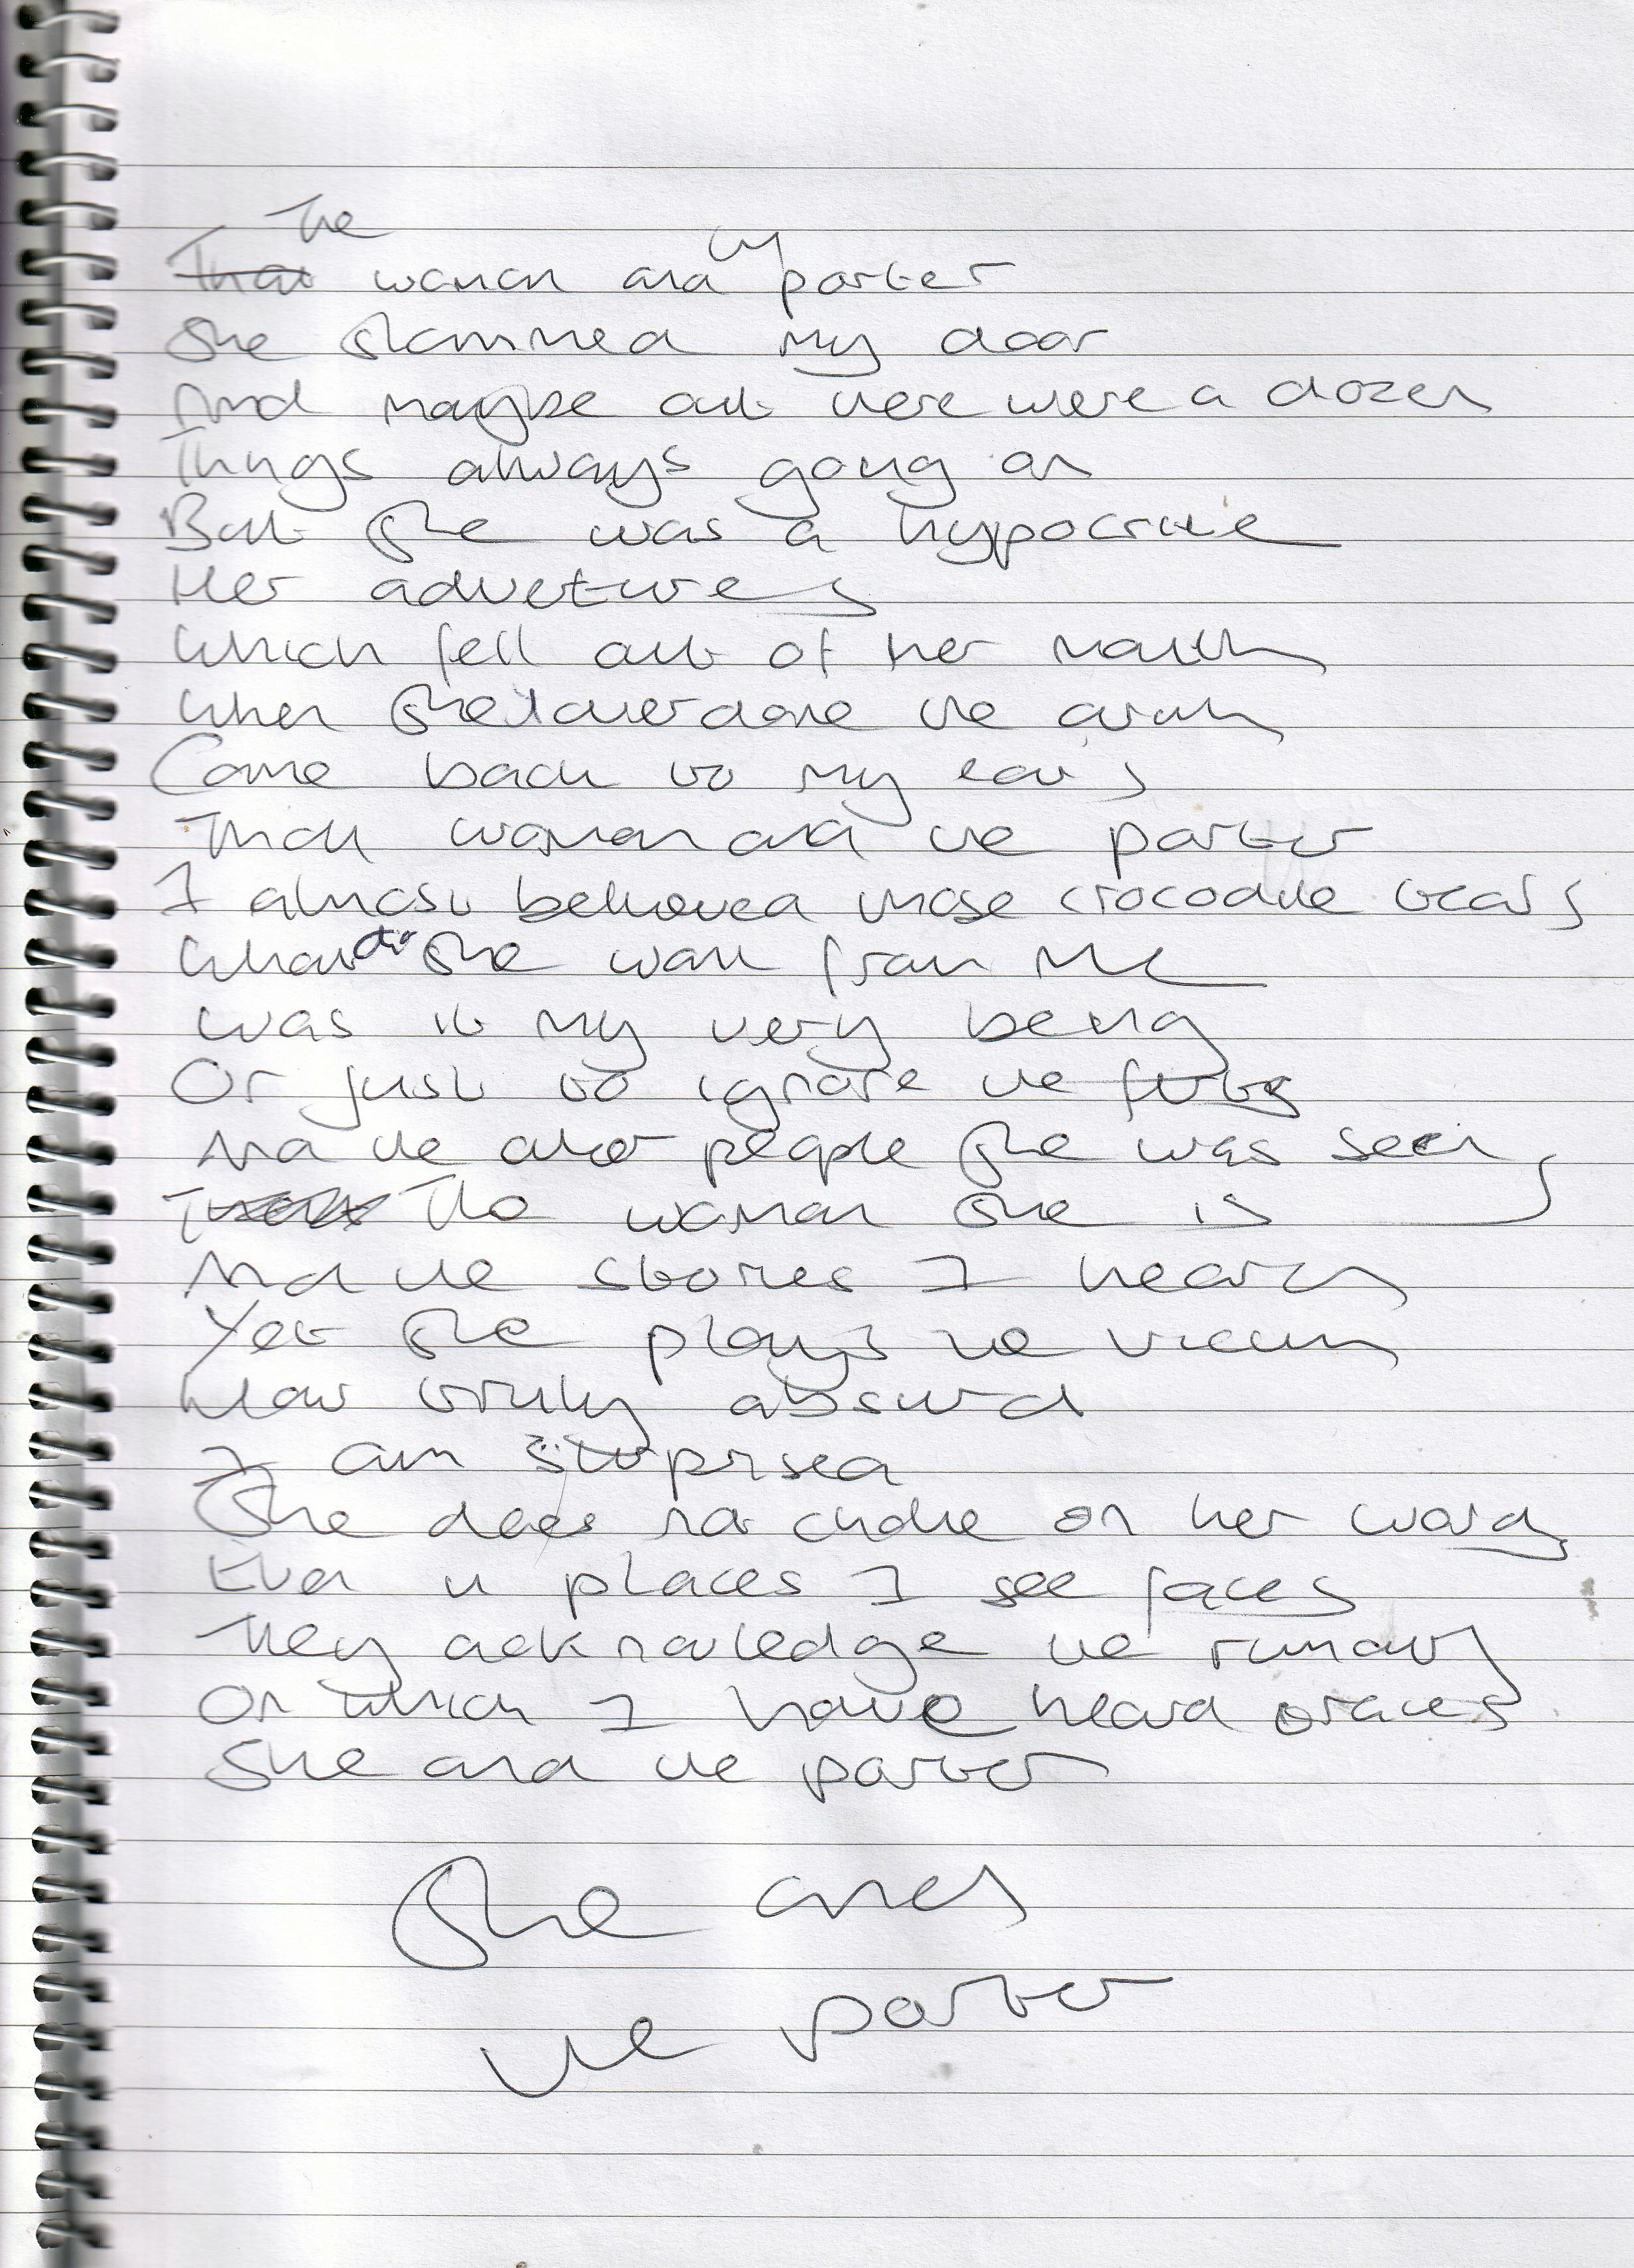 The
That woman and my porter
She slammed my door
And maybe out there were a dozen
Things always going on
But she was a hypocrite
Her advetures
Which fell out of her mouth
When she overdone the drink
Came back to my ears
That woman and the porter
I almost believed those crocodile tears
What did she want from me
Was it my very being
Or just to ignore the
And the other people she was seeing
The woman she is
And the stories I heard
Yet she plays the victim
How truly absurd
I am surprised
She does not choke on her words
Even in places I see faces
They acknowledge the rumours
On which I have heard traces
She and the porter
She and
the porter